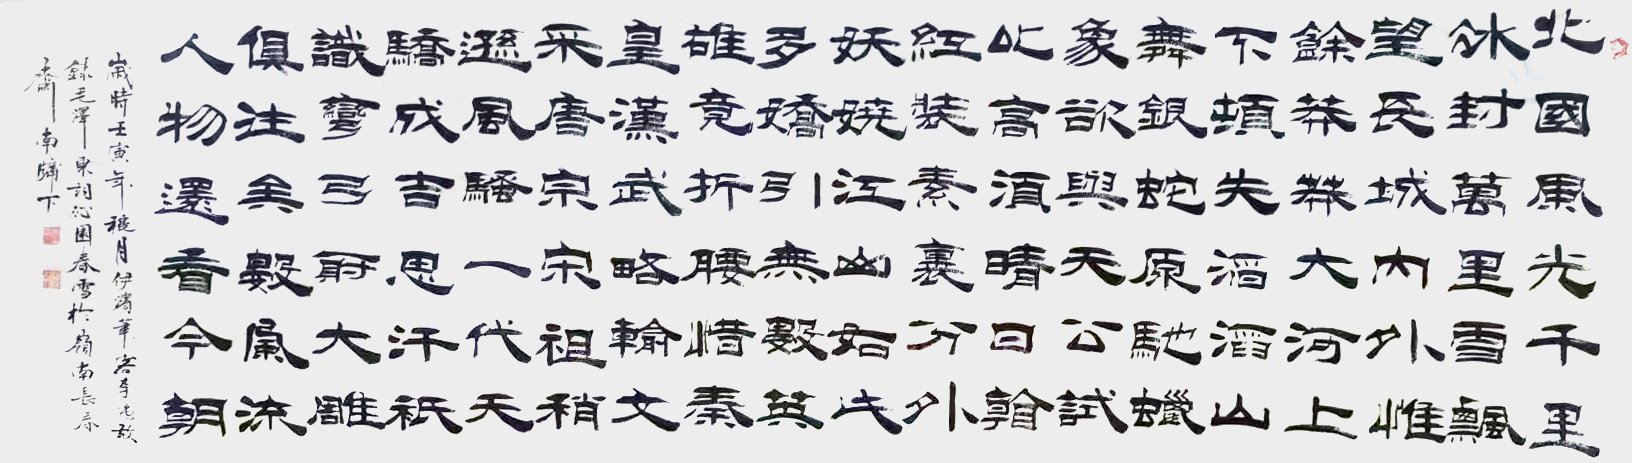 北國風光千里
冰封萬里雪飄
望長城內外惟
餘莽莽大河上
下頓失滔滔山
舞銀蛇原馳蠟
象欲與天公試
比高須晴日看
紅裝素裹分外
妖嬈江山如此
多嬌引無數英
雄竟折腰惜秦
皇漢武略輸文
采唐宗宋祖稍
遜風騷一代天
驕成吉思汗祇
識彎弓射大雕
俱往矣數風流
人物還看今朝
歲時壬寅年月伊濱筆客李敬
錄毛澤東詞沁園春雪於嶺南長春
齋南牖下